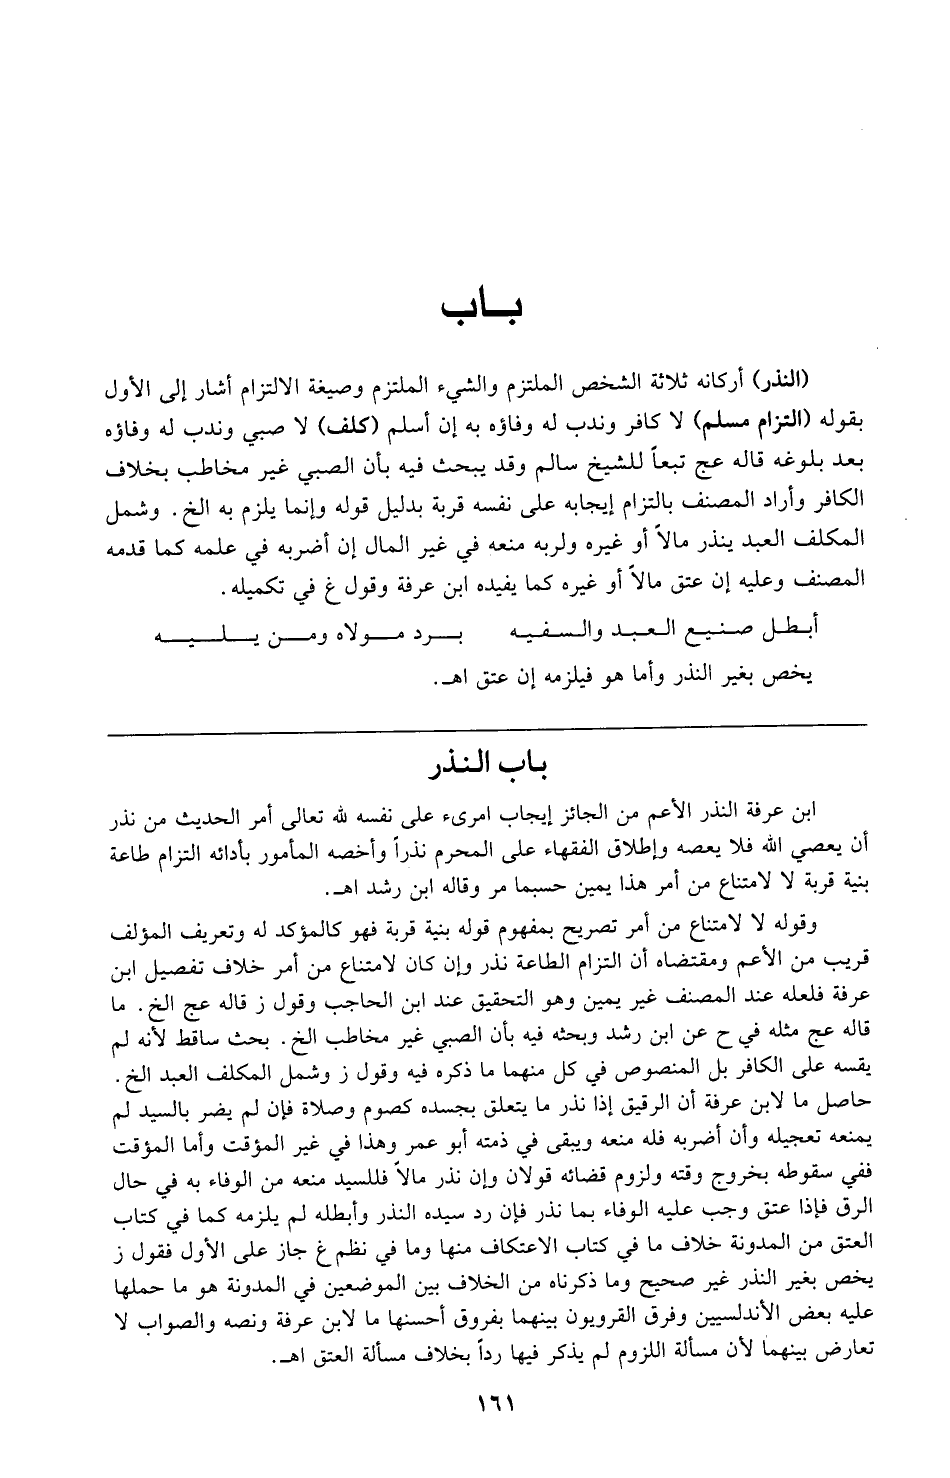 بـاب
(النذر) أركانه ثلاثة الشخص الملتزم والشيء الملتزم وصيغة الالتزام أشار إلى الأول
بقوله (التزام مسلم) لا كافر وندب له وفاؤه به إن أسلم (كلف) لا صبي وندب له وفاؤه
بعد بلوغه قاله عج تبعاً للشيخ سالم وقد يبحث فيه بأن الصبي غير مخاطب بخلاف
الكافر وأراد المصنف بالتزام إيجابه على نفسه قربة بدليل قوله وإنما يلزم به الخ. وشمل
المكلف العبد ينذر مالاً أو غيره ولربه منعه في غير المال إن أضربه في علمه كما قدمه
المصنف وعليه إن عتق مالاً أو غيره كما يفيده ابن عرفة وقول غ في تكميله.
أبطل صنيع العبد والسفيه برد مولاه ومن يليه
يخص بغير النذر وأما هو فيلزمه إن عتق اهـ.
باب النذر
ابن عرفة النذر الأعم من الجائز إيجاب امرىء على نفسه لله تعالى أمر الحديث من نذر
أن يعصي الله فلا يعصه وإطلاق الفقهاء على المحرم نذراً وأخصه المأمور بأدائه التزام طاعة
بنية قربة لا لامتناع من أمر هذا يمين حسبما مر وقاله ابن رشد اهـ.
وقوله لا لامتناع من أمر تصريح بمفهوم قوله بنية قربة فهو كالمؤكد له وتعريف المؤلف
قريب من الأعم ومقتضاه أن التزام الطاعة نذر وإن كان لامتناع من أمر خلاف تفصيل ابن
عرفة فلعله عند المصنف غير يمين وهو التحقيق عند ابن الحاجب وقول ز قاله عج الخ. ما
قاله عج مثله في ح عن ابن رشد وبحثه فيه بأن الصبي غير مخاطب الخ. بحث ساقط لأنه لم
يقسه على الكافر بل المنصوص في كل منهما ما ذكره فيه وقول ز وشمل المكلف العبد الخ.
حاصل ما لابن عرفة أن الرقيق إذا نذر ما يتعلق بجسده كصوم وصلاة فإن لم يضر بالسيد لم
يمنعه تعجيله وأن أضربه فله منعه ويبقى في ذمته أبو عمر وهذا في غير المؤقت وأما المؤقت
ففي سقوطه بخروج وقته ولزوم قضائه قولان وإن نذر مالاً فللسيد منعه من الوفاء به في حال
الرق فإذا عتق وجب عليه الوفاء بما نذر فإن رد سيده النذر وأبطله لم يلزمه كما في كتاب
العتق من المدونة خلاف ما في كتاب الاعتكاف منها وما في نظم غ جاز على الأول فقول ز
يخص بغير النذر غير صحيح وما ذكرناه من الخلاف بين الموضعين في المدونة هو ما حملها
عليه بعض الأندلسيين وفرق القرويون بينهما بفروق أحسنها ما لابن عرفة ونصه والصواب لا
تعارض بينهما لأن مسألة اللزوم لم يذكر فيها رداً بخلاف مسألة العتق اهـ.
١٦١